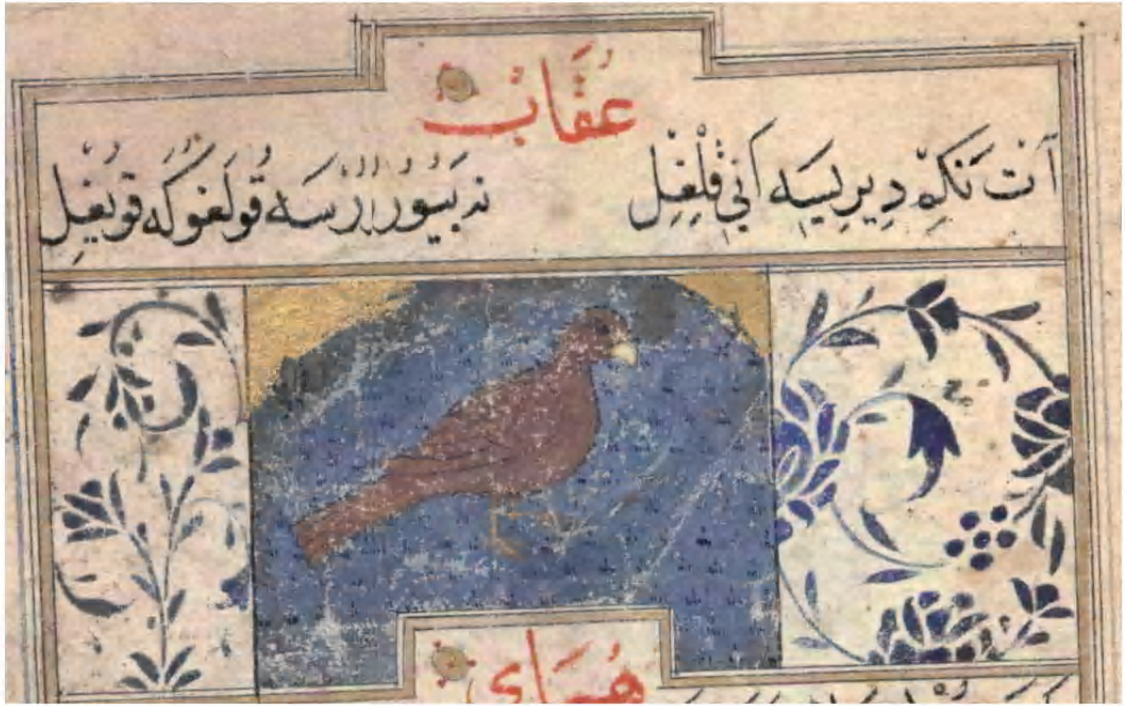 عُقَّابْ
ديريسه اني قلغل نه بيورر ارسه قولغوكه قويغل
هُمَاي